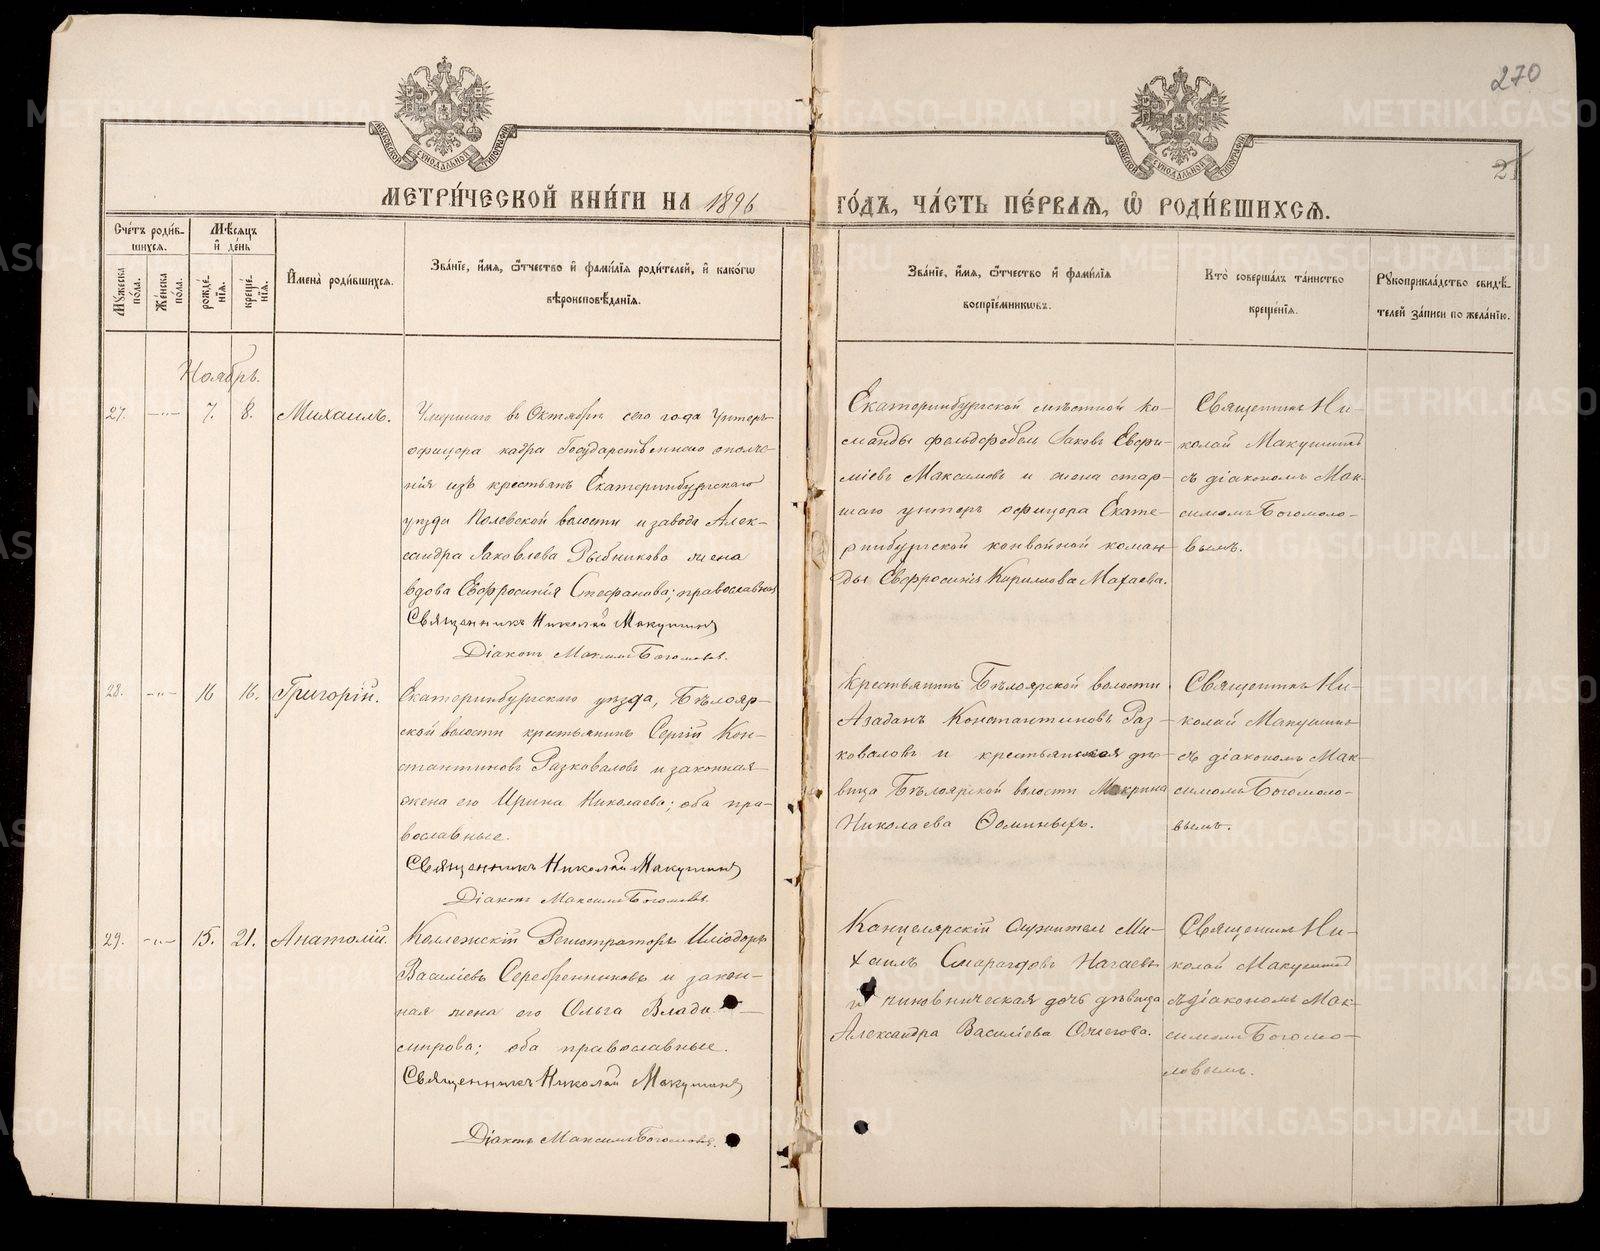 270
25
МОСКОВСКОЙ СУНОДАЛЬНОЙ ТИПОГРАФІИ
МОСКОВСКОЙ СУНОДАЛЬНОЙ ТИПОГРАФІИ
МЕТРИ́ЧЕСКОЙ КНИ́ГИ НА 1896 ГО́ДЪ, ЧА́СТЬ ПЕ́РВАѦ, Ѡ РОДИ́ВШИХСѦ.
Сче́тъ роди́в-
шихсѧ.
Мѣсѧцъ
и де́нь
Мꙋжеска
по́ла.
Же́нска
по́ла.
рожде́-
нїѧ.
креще́-
нїѧ.
Имена̀ роди́вшихсѧ.
Зва́нїе, и́мѧ, ѻ҆́тчество и҆ фамі́лїѧ роди́телей, и҆ како́гѡ
вѣроисповѣ́данїѧ.
Зва́нїе, и́мѧ, ѻ҆́тчество и҆ фамі́лїѧ
воспрїе́мникѡвъ.
Кто̀ соверша́лъ та́инство
креще́нїѧ.
Рꙋкоприкла́дство свидѣ́-
телей за́писи по жела́нїю.
Ноябрь.
27. —"— 7. 8. Михаилъ.
Умершаго въ Октябрѣ сего года Унтеръ-
офицера кадра Государственнаго ополче-
нія изъ крестьянъ Екатеринбургскаго
уѣзда Полевской волости и завода Алек-
сандра Яковлева Рыбникова жена
вдова Евфросинія Стефанова; православная
Священникъ Николай Макушинъ
Діаконъ Максимъ Богомоловъ.
Екатеринбургской мѣстной ко-
манды фельдфебель Яковъ Евфи-
міевъ Максимовъ и жена стар-
шаго унтеръ офицера Екате-
ринбургской конвойной коман-
ды Евфросинія Кирилова Махаева.
Священникъ Ни-
колай Макушинъ
съ діакономъ Мак-
симомъ Богомоло-
вымъ.
28. —"— 16 16. Григорій.
Екатеринбургскаго уѣзда, Бѣлояр-
ской волости крестьянинъ Сергій Кон-
стантиновъ Разковаловъ и законная
жена его Ирина Николаева; оба пра-
вославные.
Священникъ Николай Макушинъ
Діаконъ Максимъ Богомоловъ
Крестьянинъ Бѣлоярской волости
Азаданъ Константиновъ Раз-
коваловъ и крестьянская дѣ-
вица Бѣлоярской волости Макрина
Николаева Ѳоминыхъ.
Священникъ Ни-
колай Макушинъ
съ діакономъ Мак-
симомъ Богомоло-
вымъ.
29. —"— 15. 21. Анатолій.
Коллежскій Регистраторъ Иліодоръ
Василіевъ Серебренниковъ и закон-
ная жена его Ольга Влади-
мірова; оба православные.
Священникъ Николай Макушинъ
Діаконъ Максимъ Богомоловъ.
Канцелярскій служитель Ми-
хаилъ Смарагдовъ Нагаевъ
и чиновническая дочь дѣвица
Александра Василіева
Священникъ Ни-
колай Макушинъ
съ діакономъ Мак-
симомъ Богомо-
ловымъ.